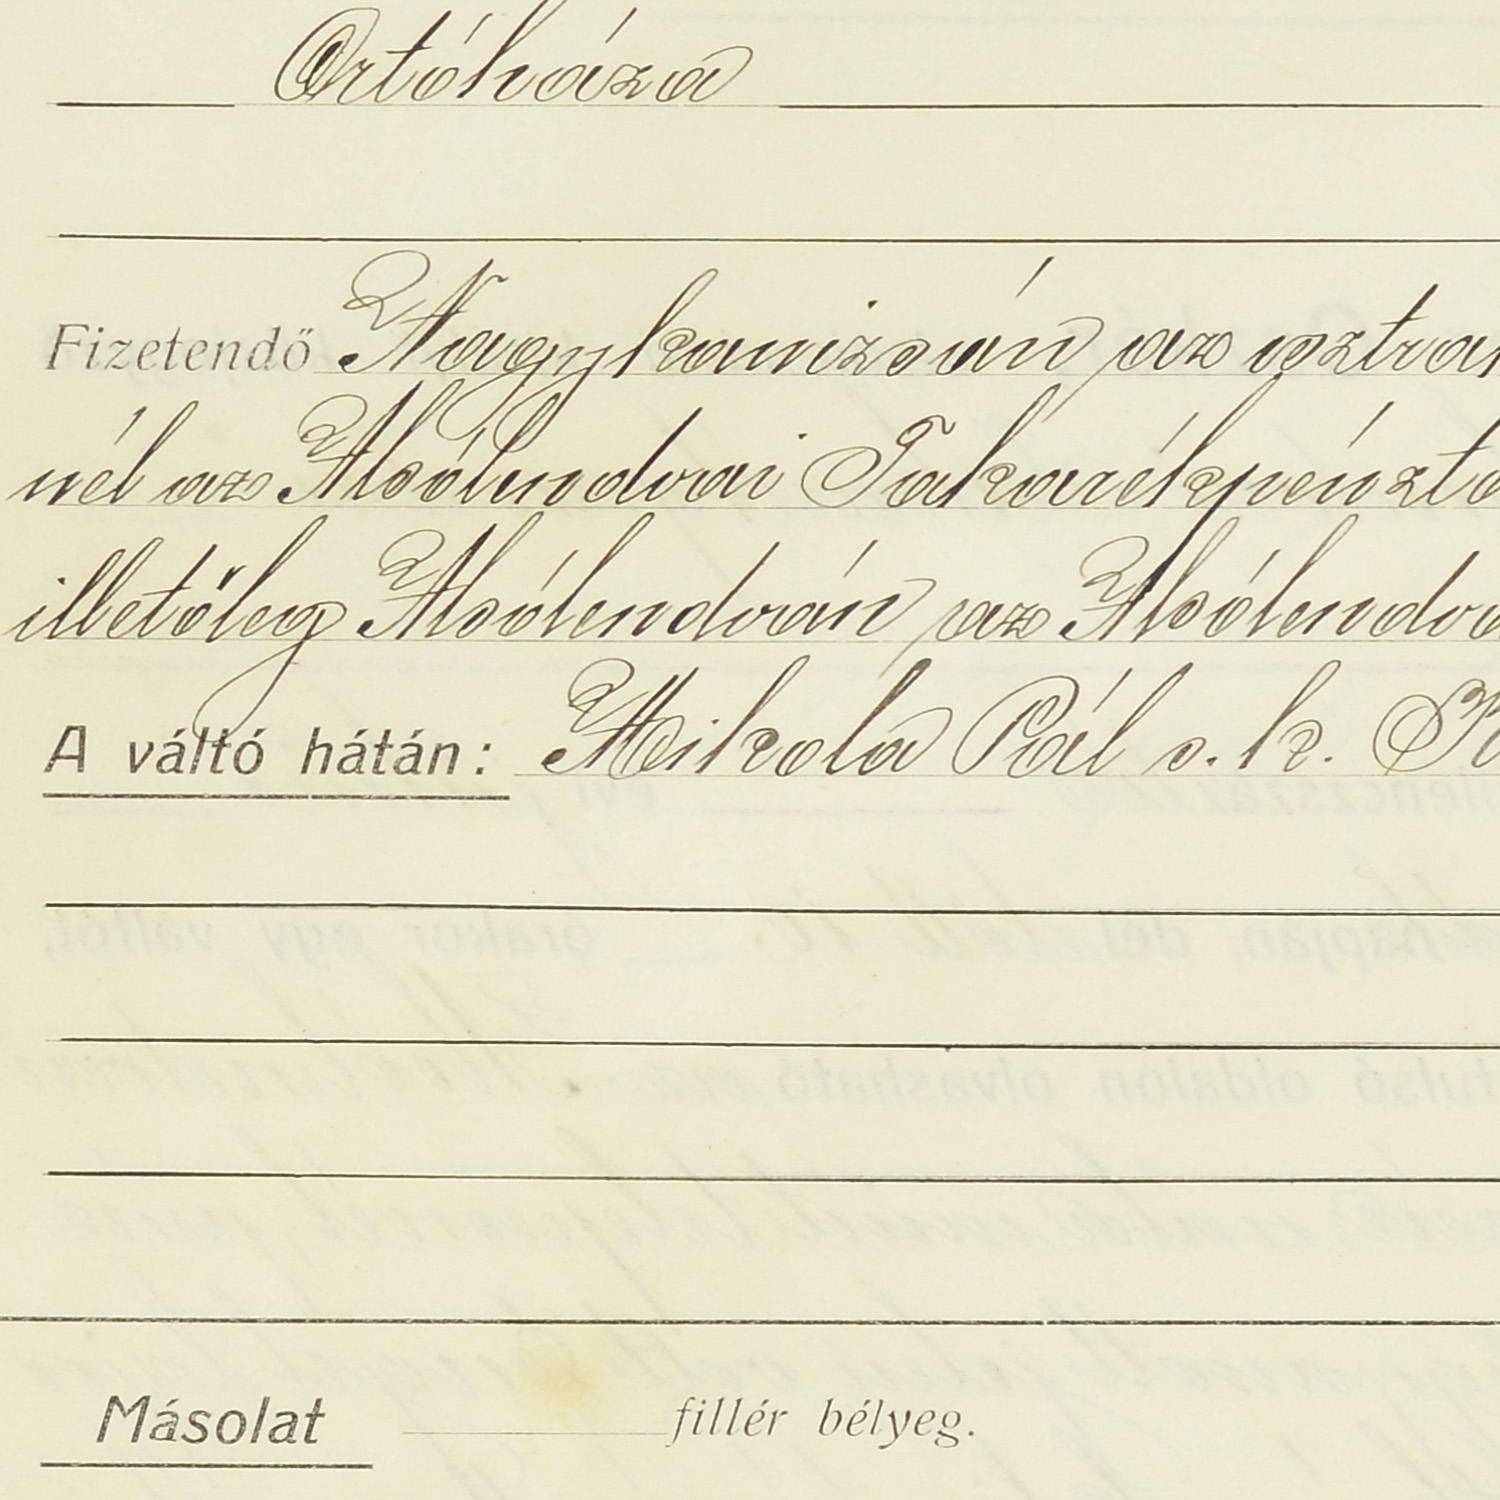 Ortóháza
Fizetendő Nagykanizsán az osztrák
nél az Alsólendvai Takarékpénztá
illetőleg Alsólendván az Alsólendva
A váltó hátán: Mikola Pál s. k.
Másolat fillér bélyeg.